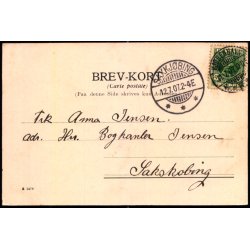 BREV-KORT
(Carte postale)
(Paa denne Side skrives kun A
KJØBING
12.7.07.2-4E
Frk Anna Jensen.
adr. Hr. Boghanler Jensen
Sakskobing